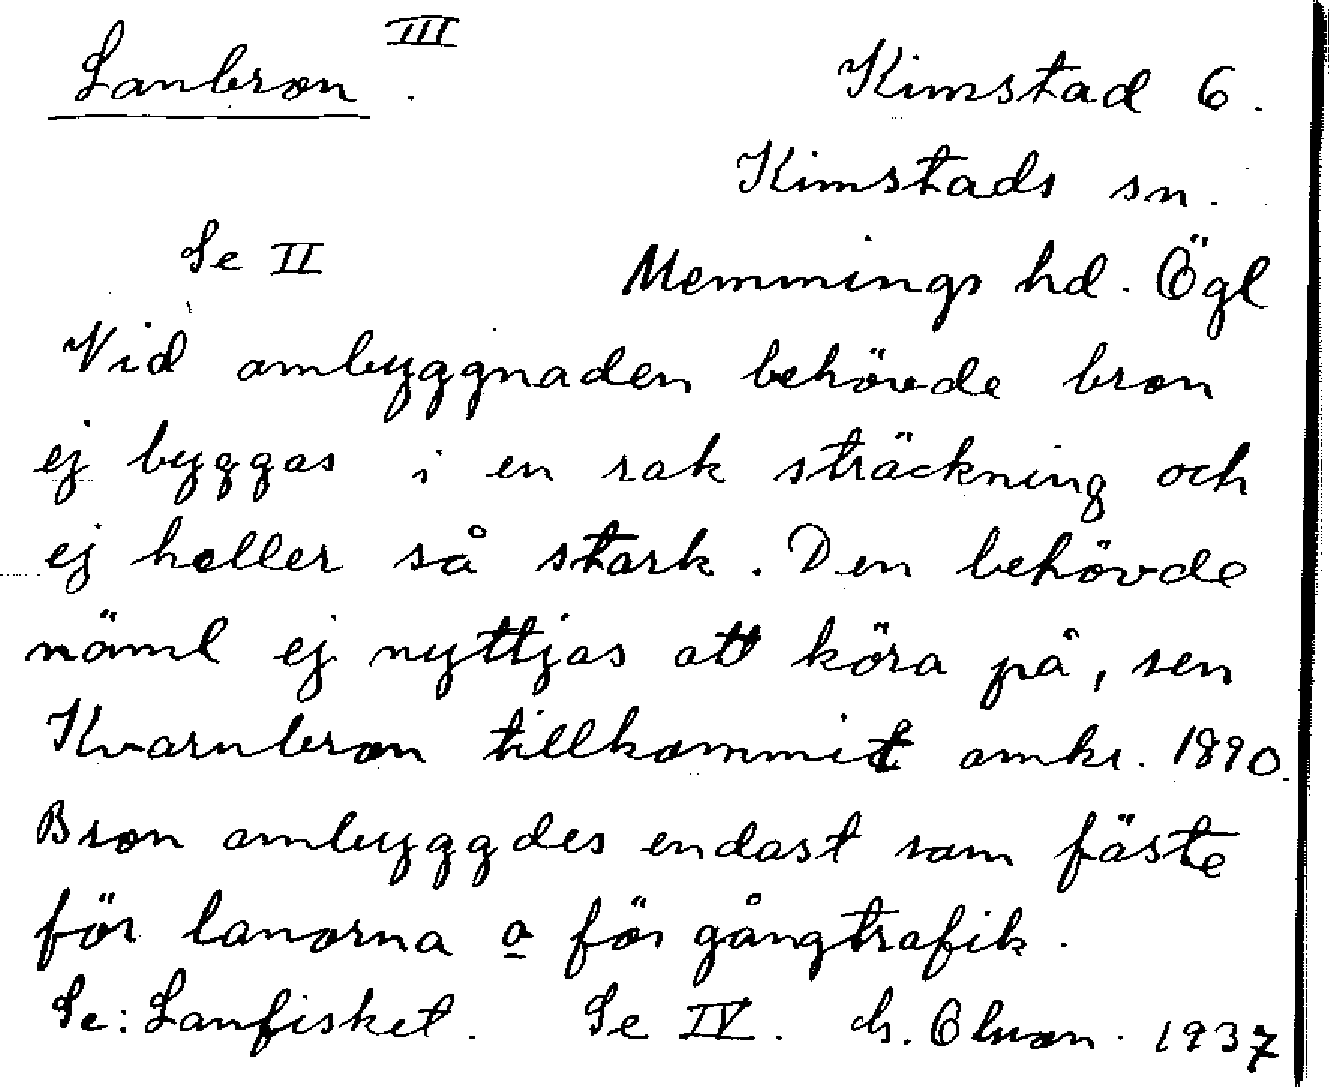 III
Lanbron.
Kimstad 6.
Kimstads sn.
Se II
Memmings hd. Ögl
Vid ombyggnaden behövde bron
ej byggas i en rak sträckning och
ej heller så stark. Den behövde
näml ej nyttjas att köra på, sen
Kvarnbron tillkommit omkr. 1890.
Bron ombyggdes endast som fäste
för lanorna o för gångtrafik.
Se: Lanfisket. Se IV. 1937